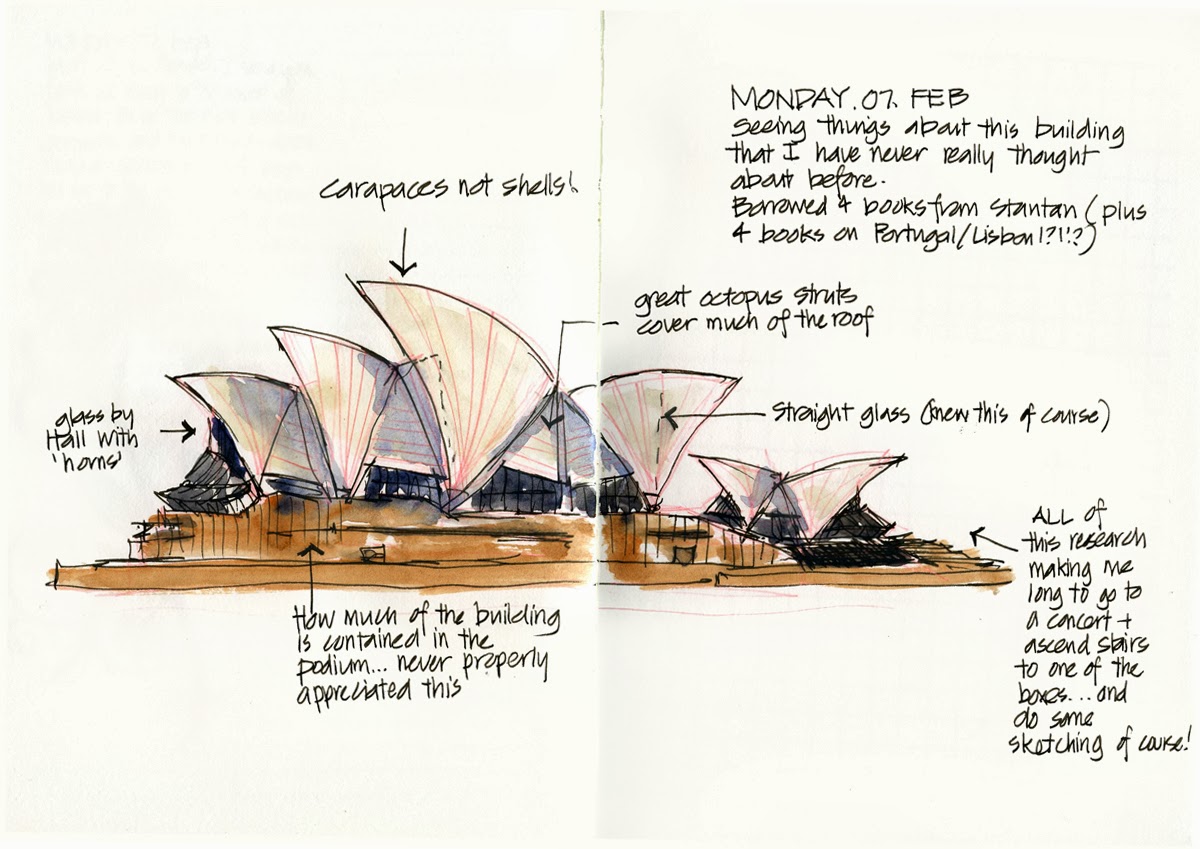 MONDAY. 07. FEB
seeing things about this building
that I have never really thought
about before.
Borrowed 4 books from Stantan (plus
4 books on Portugal/Lisbon!?!!?)
carapaces not shells!
great octopus struts
cover much of the roof
straight glass (knew this of course)
glass by
Hall with
'horns'
How much of the building
is contained in the
podium... never properly
appreciated this
ALL of
this research
making me
long to go to
a concert +
ascend stairs
to one of the
boxes... and
do some
sketching of course!